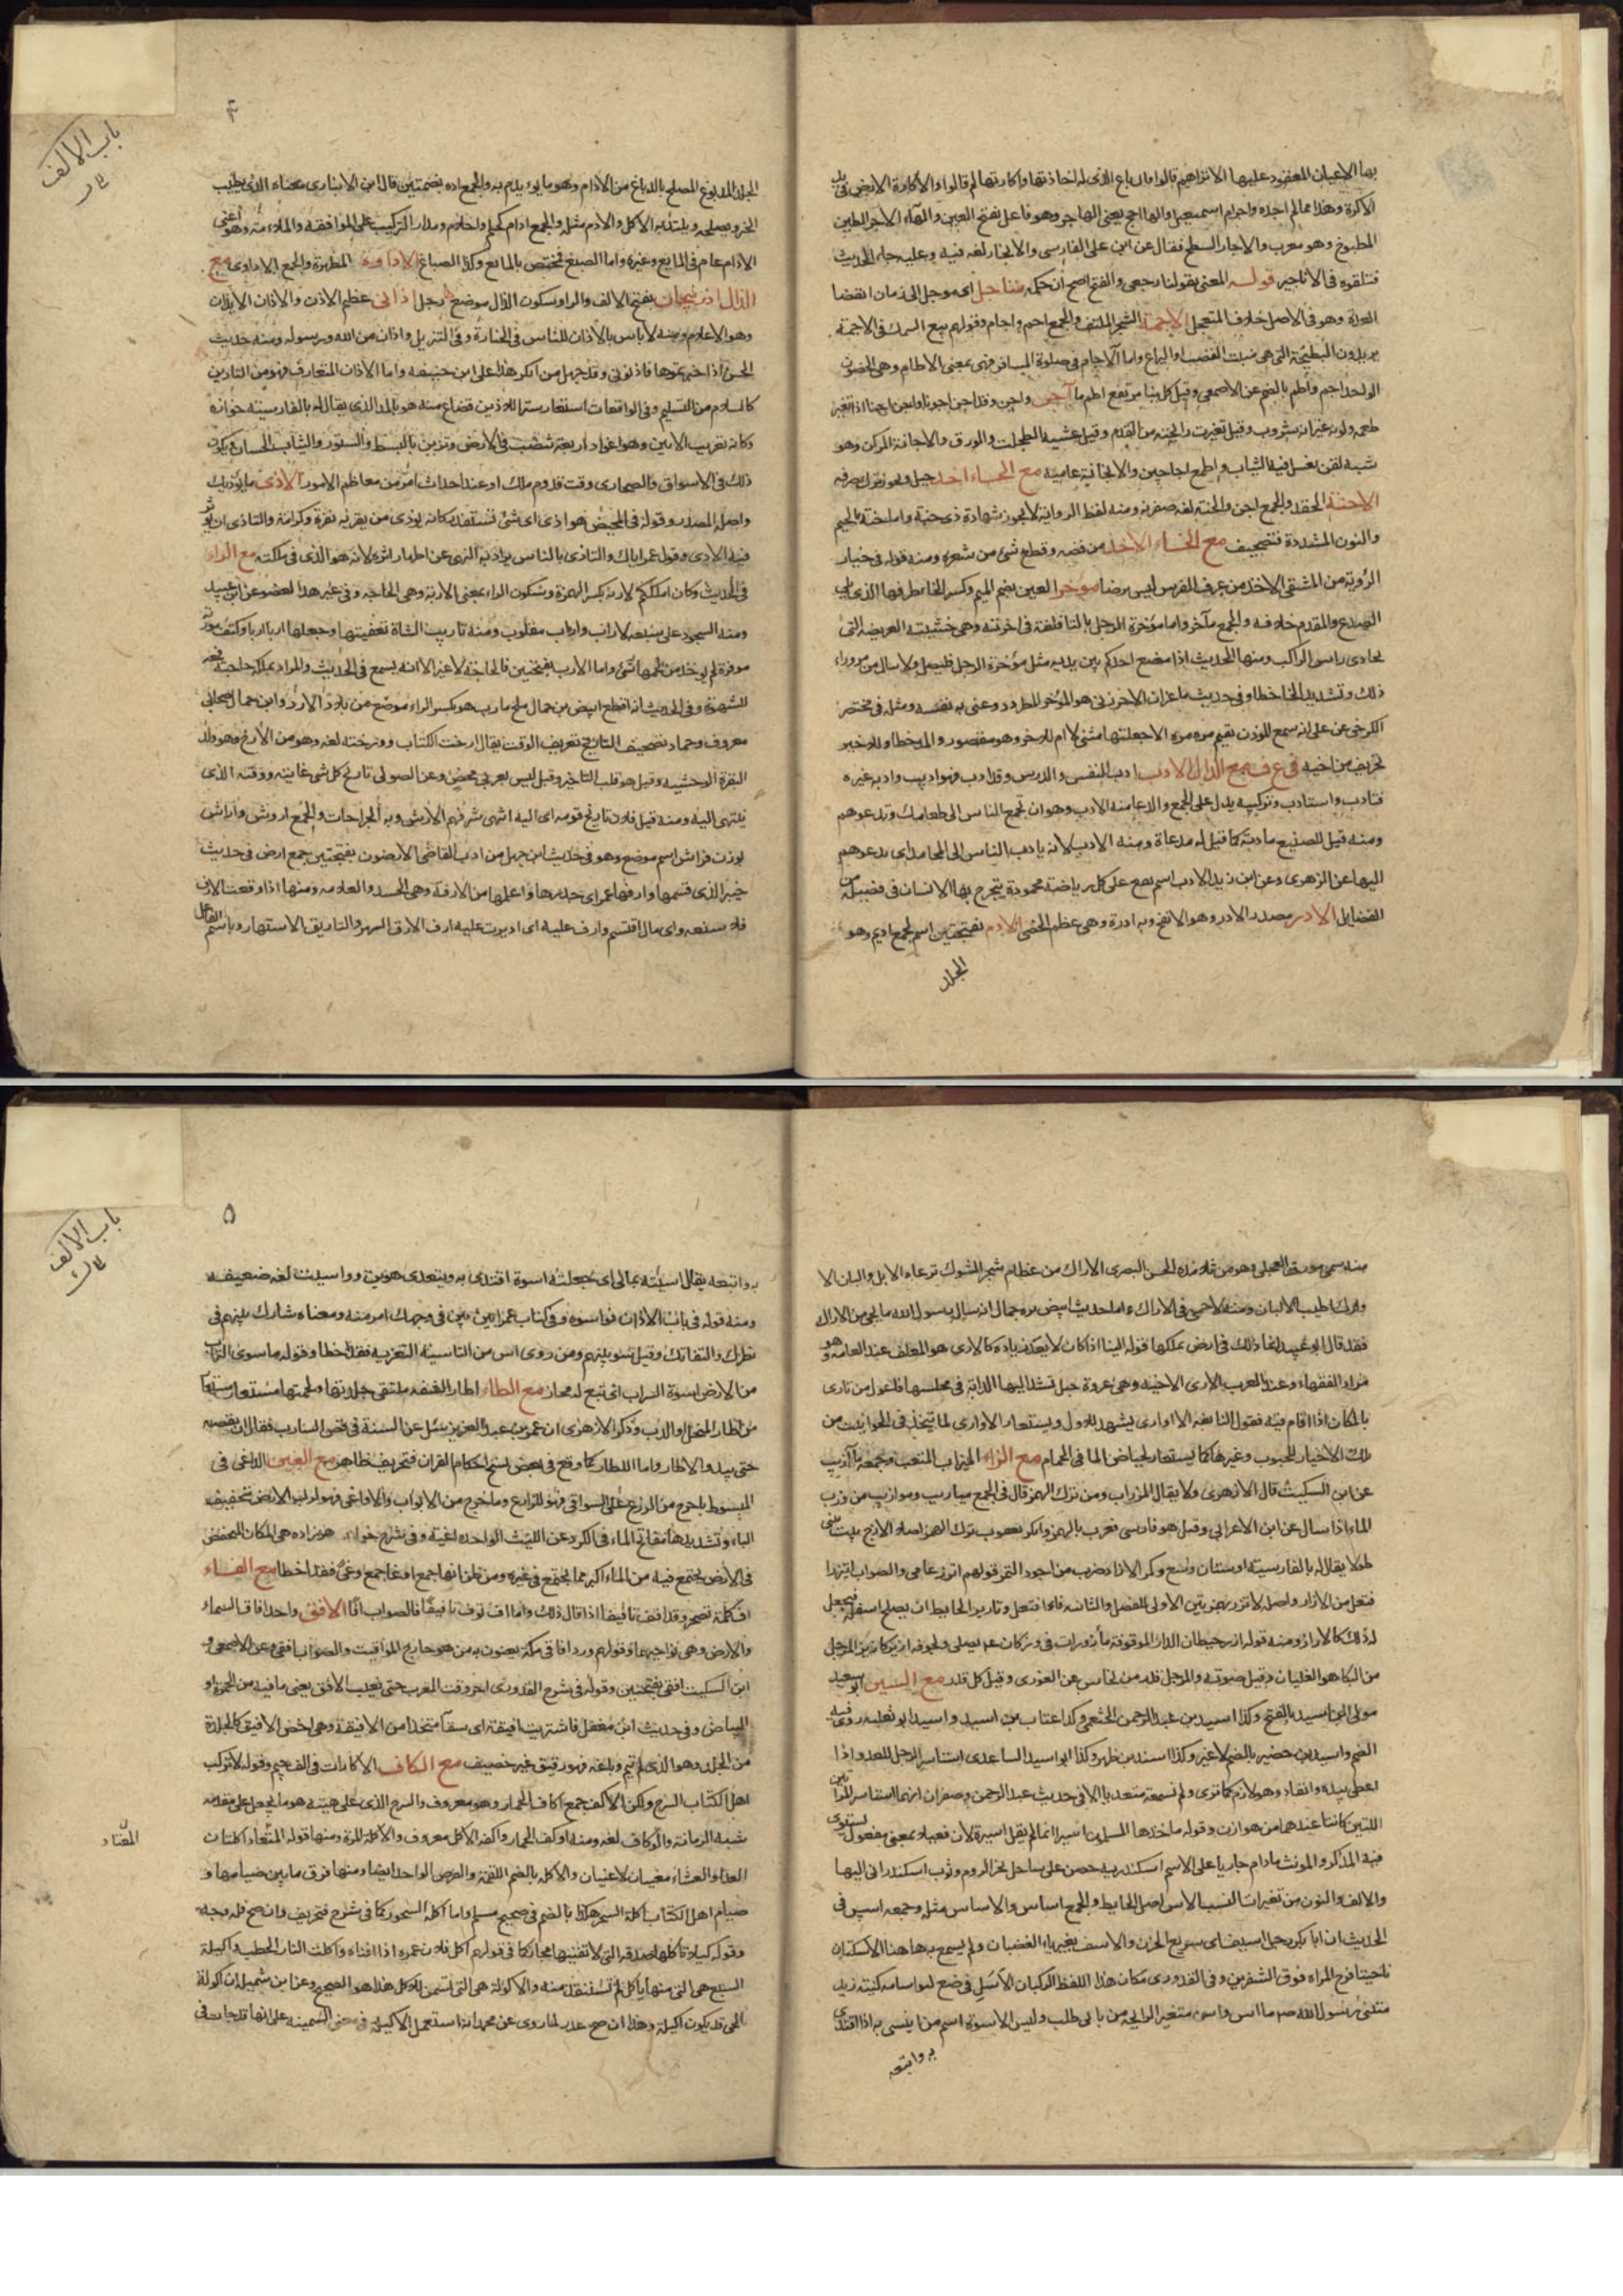 بها الاعيان المعقود عليها الا تراهم قالوا
الاكرة وهذا مما لم اجده واجرام اسمعيل والهااجر يعني الهاجر وهو فاعل بفتح العين والهاء الاجر الطين
المطبوخ وهو معرب والاجار السطح فقال عن ابي علي الفارسي والانجار لغة فيه وعليه جاء الحديث
فتلقوه في الاناجير قوله المعنى بقولنا رجعي والفتح اصح ان حكمه متاجل اي موجل الى زمان انقضا
العدة وهو في الاصل خلاف المتعجل الاجمة الشجر الملتف والجمع اجم واجام وقولهم بيع السمك في الاجمة
يريدون البطيحة التي هي منبت القصب او اليراع واما الآجام في صلوة المسافر فهي بمعنى الاطام وهي الحصون
الواحد اجم واطم بالضم عن الاصمعي وقيل كل بناء مرتفع اطم ماء آجن واجن وقد اجن اجونا واجن اجنا اذا تغير
طعمه ولونه غير انه شروب وقيل تغيرت رايحته من القدم وقيل غشيه الطحلب والورق والاجانة المركن وهو
شبه لقن يغسل فيه الثياب والجمع اجاجين والانجانة عامية مع الحاء احد جبل
الاحنة الحقد والجمع احن والحنة لغة ضعيفة ومنه لفظ الرواية لا يجوز شهادة ذي حنة واما جنة بالجيم
والنون المشددة فتصحيف مع الخاء الاخذ من فضة وقطع شئ من شعره ومنه قوله في خيار
الرؤية من المشتقى الاخذ من عرف الفرس ليس برضا مؤخر العين بضم الميم وكسر الخاء طرفها الذي يلي
الصدغ والمقدم خلافه والجمع مآخر واما مؤخرة الرحل بالتاء فلغة في اخرته وهي خشبته العريضة التي
تحاذي راس الراكب ومنها الحديث اذا وضع احدكم بين يديه مثل مؤخرة الرحل فليصل ولا يبال من مر وراء
ذلك وتشديد الخاء خطا وفي حديث ماعز ان الاخر زنى هو المؤخر المطرود وعنى به نفسه ومثله في مختصر
الكرخي عن علي انه سمع المؤذن يقيم مرة مرة الا جعلتها مثنى لا ام للاخر وهو مقصور والمد خطا وللاخير
تحريف من اخيه في ع ف مع الدال الادب ادب النفس والدرس وقد ادب فهو اديب وادبه غيره
فتادب واستادب وتركيبه يدل على الجمع والدعاء منه الادب وهو ان تجمع الناس الى طعامك وتدعوهم
ومنه قيل للصنيع مادبة كما قيل له مدعاة ومنه الادب لانه يادب الناس الى المحامد اي يدعوهم
اليها عن الازهري وعن ابي زيد الادب اسم يقع على كل رياضة محمودة يتخرج بها الانسان في فضيلة من
الفضايل الادر مصدر الادر وهو الانفخ وبه ادرة وهي عظم الخصى الادم بفتحتين اسم لجمع اديم وهو
الجلد
باب الالف
٤
الجلد المدبوغ المصلح بالدباغ من الادام وهو ما يؤتدم به والجمع ادم بضمتين قال ابن الانباري معناه الذي يطيب
الخبز ويصلحه ويلتذ به الاكل والادم مثله والجمع ادام كحلم واحلام ومدار التركيب على الموافقة والملاءمة وهو اعني
الادام عام في المايع وغيره واما الصبغ فمختص بالمايع وكذا الصباغ الاداوة المطهرة والجمع الاداوى مع
الذال اذربيجان بفتح الالف والراء وسكون الذال موضع رجل اذاني عظيم الاذن والاذان الايذان
وهو الاعلام ومنه لا باس بالاذان للناس في الجنازة وفي التنزيل واذان من الله ورسوله ومنه حديث
الحسن اذا حضرتموها فاذنوني وقد جهل من انكر هذا على ابي حنيفة واما الاذان المتعارف فهو من التاذين
كالسلام من التسليم وفي الواقعات استعار سترا للاذين فضاع منه هو بالمد الذي يقال له بالفارسية خوازه
وكانه تعريب الائين وهو اعواد اربعة تنصب في الارض وتزين بالبسط والستور والثياب الحسان ويكون
ذلك في الاسواق والصحارى وقت قدوم ملك او عند احداث امر من معاظم الامور الاذى ما يؤذيك
واصله المصدر وقوله في المحيض هو اذى اي شئ مستقذر كانه يؤذي من يقربه نفرة وكراهة والتاذي ان يؤثر
فيه الاذى وقول عمر اياك والتاذي بالناس يراد به النهي عن اظهار اثره لانه هو الذي في ملكته مع الراء
في الحديث وكان املككم لاربه بكسر الهمزة وسكون الراء بمعنى الاربة وهي الحاجة وفي غير هذا العضو عن ابي عبيد
ومنه السجود على سبعة اراب وارءاب مقلوب ومنه تاريب الشاة تعضيتها وجعلها اربا اربا وكتف مؤربة
موفرة لم يوخذ من لحمها شئ واما الارب بفتحتين فالحاجة لا غير الا انه يسمع في الحديث والمراد يملك حاجته
للشهوة وفي الحديث انه اقطع ابيض بن حمال ملح مارب هو بكسر الراء موضع من بلاد الازد وابن حمال صحابي
معروف وحماد تصحيف التاريخ تعريف الوقت يقال ارخت الكتاب وورخته لغة وهو من الارخ وهو ولد
البقرة الوحشية وقيل هو قلب التاخير وقيل ليس بعربي محض وعن الصولي تاريخ كل شئ غايته ووقته الذي
ينتهي اليه ومنه قيل فلان تاريخ قومه اي اليه انتهى شرفهم الارش دية الجراحات والجمع اروش واراش
بوزن فراش اسم موضع وهو في حديث ابي جهل من ادب القاضي الارضون بفتحتين جمع ارض في حديث
خيبر الذي قسمها وارفها عمر اي حددها واعلمها من الارفة وهي الحد والعلامة ومنها اذا وقعت الارف
فلا شفعة واي مال اقتسم وارف عليه اي اديرت عليه ارف الارق السهر والتاريق الاسهار وباسم الفاعل
منه سمي مورق العجلي وهو من تلامذة الحسن البصري الاراك من عظام شجر الشوك ترعاه الابل والبان الا
وارك اطيب الالبان ومنه لا حمى في الاراك واما حديث ابيض بن حمال انه سال رسول الله ما يحمى من الاراك
فقد قال ابو عبيد انما ذلك في ارض يملكها قوله الينا اذا كان لا يعتلف باده كالاري هو المعلف عند العامة وهو
مراد الفقهاء وعند العرب الاري الاخية وهي عروة حبل تشد اليها الدابة في محبسها فاعول من تارى
بالمكان اذا اقام فيه فقول النابغة الا اواري يشهد للاول ويستعار الاواري لما يتخذ في الحوانيت من
تلك الاحياز للحبوب وغيرها كما يستعار لحياض الماء في الحمام مع الزاء الميزاب المثعب وجمعه مآزيب
عن ابن السكيت قال الازهري ولا يقال المزراب ومن ترك الهمز قال في الجمع ميازيب وموازيب من وزب
الماء اذا سال عن ابن الاعرابي وقيل هو فارسي فعرب بالهمز وانكر يعقوب ترك الهمز اصلا الازج بيت يبنى
طولا يقال له بالفارسية اوستان الازاد ضرب من اجود التمر قولهم اتزر عامي والصواب ايتزر
افتعل من الازار واصله ائتزر بهمزتين الاولى للوصل والثانية فاء افتعل وتازير الحايط ان يصلح اسفله فيجعل
له ذلك كالازار ومنه قوله ازر حيطان الدار الموقوفة يصلي ولجوفه ازيز كازيز المرجل
من البكاء هو الغليان وقيل صوته والمرجل قدر من نحاس عن الغوري وقيل كل قدر مع السين ابو سعيد
مولى ابي اسيد بالفتح وكذا اسيد بن عبد الرحمن الخثعمي وكذا عتاب بن اسيد واسيد ابو ثعلبة روى فيه
الضم واسيد بن حضير بالضم لا غير وكذا اسيد بن ظهير وكذا ابو اسيد الساعدي استاسر الرجل للعدو اذا
اعطى بيده وانقاد وهو لازم كما ترى ولم نسمعه متعديا الا في حديث عبد الرحمن وصفوان انهما استاسرا المراتين
اللتين كانتا عندهما من هوازن وقوله ماخذها المسلمين اسيرا انما لم يقل اسيرة لان فعيلا بمعنى مفعول يستوي
فيه المذكر والمونث مادام جاريا على الاسم اسكندرية حصن على ساحل بحر الروم وثوب اسكندراني اليها
والالف والنون من تغيرات النسب الاس اصل الحايط والجمع اساس والاساس مثله وجمعه اسس في
الحديث ان ابا بكر رجل اسيف اي سريع الحزن والاسف بغير ياء الغضبان ولم يسمع به هاهنا الاسكتان
ناحيتا فرج المراة فوق الشفرين وفي القدوري مكان هذا اللفظ الركبان
متغير الرايحة من باب طلب ولبس الاسوة اسم من ايتسى به اذا اقتدى
به واتبعه
باب الالف
٥
به واتبعه يقال اسيته بمالي اي جعلته اسوة اقتدي به ويقتدي هو بي وواسيت لغة ضعيفة
ومنه قوله في باب الاذان فواسوه وفي كتاب عمر آس بين الناس في وجهك امر منه ومعناه شارك بينهم في
نظرك والتفاتك وقيل سو بينهم ومن روى اس من التاسية التعزية فقد اخطا وقوله ما سوى التراب
من الارض اسوة التراب اي تبع له مجاز مع الطاء اطار الشفة ملتقى جلدتها ولحمتها مستعار
من اطار المنخل او الدف وذكر الازهري ان عمر بن عبد العزيز سئل عن السنة في قص الشارب فقال ان تقصه
حتى يبدو الاطار واما اللطار كما وقع في بعض نسخ احكام القران فتحريف ظاهر مع الغين الداغى في
الباء وتشديدها مفاتح الماء في الكرد عن الليث الواحدة اغية وفي شرح خواهر زاده هي المكان المنخفض
في الارض يجتمع فيه من الماء اكثر مما يجتمع في غيره ومن ظن انها جمع فقد اخطا مع الفاء
اف كلمة تضجر وقد افف تافيفا اذا قال ذلك واما اف يؤف تافيفا فالصواب افا الافق واحد افاق السماء
والارض وهي نواحيهما وقولهم ورد افاقي مكة يعنون به من هو خارج المواقيت والصواب افقي وعن الاصمعي و
ابن السكيت افقي بفتحتين وقوله في شرح القدوري اخر وقت المغرب حتى يغيب الافق يعني ما فيه من الحمرة او
البياض وفي حديث ابن مغفل فاشتريت افيقة اي سقاء متخذا من الافيقة وهي اخص من الافيق كالجلدة
من الجلد وهو الذي لم يتم دباغه فهو رقيق غير خصيف مع الكاف الاكارات في الف جيم وقوله لا تركب
اهل الكتاب السرج ولكن الاكف جمع اكاف الحمار وهو معروف والسرج الذي على هيئته هو ما يجعل على مقدمه
شبه الرمانة والوكاف لغة ومنه اوكف الحمار واكفه الاكل معروف والاكلة المرة ومنها قوله المتعاد اكلتان
الغداء والعشاء مغيبان لاعنيان والاكلة بالضم اللقمة والقرص الواحد ايضا ومنها فرق ما بين صيامنا و
صيام اهل الكتاب اكلة السحر هكذا بالضم في صحيح مسلم واما اكلة السحور كما في شرح فتحريف وان صح فله وجه
وقوله كيلا تاكلها الصدقة اي لا تفنيها مجاز كما في قولهم اكل فلان عمره اذا افناه واكلت النار الحطب واكيلة
السبع هي التي منها ياكل ثم تستنقذ منه والاكولة هي التي تسمن للاكل هذا هو الصحيح وعن ابن شميل ان اكولة
الحي قد يكون اكيلة وهذا ان صح عذر لما روي عن محمد انه استعمل الاكيلة في معنى السمينة على انها قد جاءت في
المعتاد